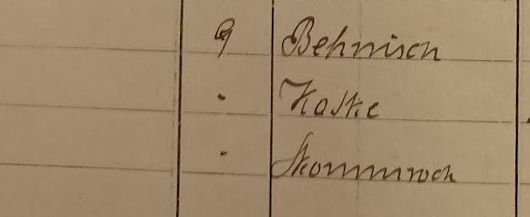 9 Behnisch
" Kaske
" Skommroch